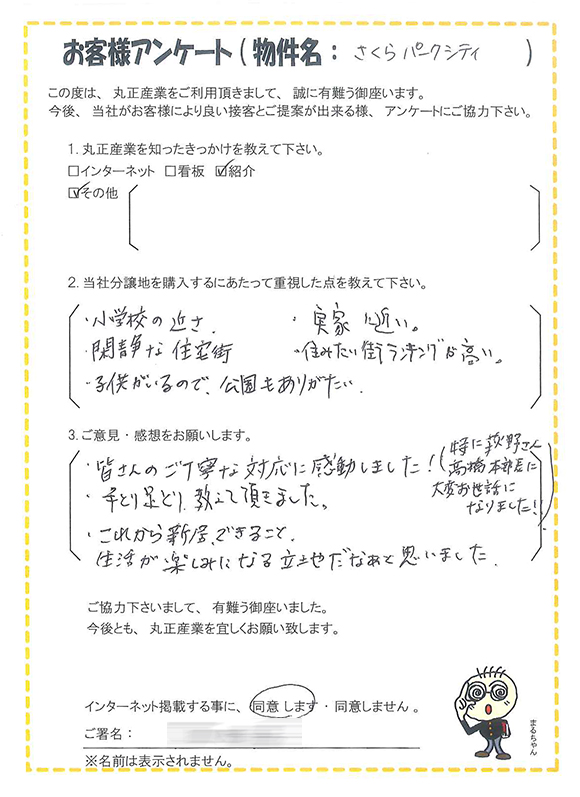 お客様アンケート(物件名：さくらパークシティ)
この度は、丸正産業をご利用頂きまして、誠に有難う御座います。
今後、当社がお客様により良い接客とご提案が出来る様、アンケートにご協力下さい。
1. 丸正産業を知ったきっかけを教えて下さい。
□インターネット □看板 ☑紹介
☑その他
2. 当社分譲地を購入するにあたって重視した点を教えて下さい。
・小学校の近さ ・実家に近い。
・閑静な住宅街 ・住みたい街ランキングが高い。
・子供がいるので、公園もありがたい.
3. ご意見・感想をお願いします。
・皆さんのご丁寧な対応に感動しました！(特に荻野さん
高橋本部長に
大変お世話に
なりました!!)
・手とり足とり、教えて頂きました。
・これから新居、できること、
生活が楽しみになる立地だなぁと思いました.
ご協力下さいまして、有難う御座いました。
今後とも、丸正産業を宜しくお願い致します。
インターネット掲載する事に、同意します・同意しません。
ご署名：
※名前は表示されません。
まるちゃん